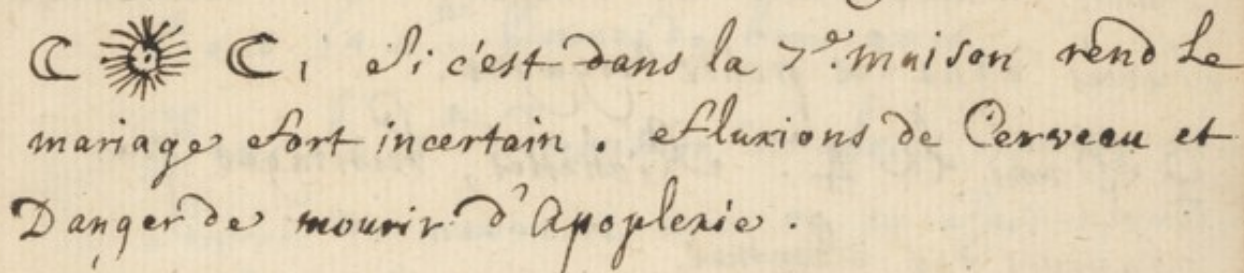 ☾ ☉ ☾, Si c'est dans la 7e. maison rend Le
mariage fort incertain. fluxions de Cerveau et
Danger de mourir d'Apoplexie.